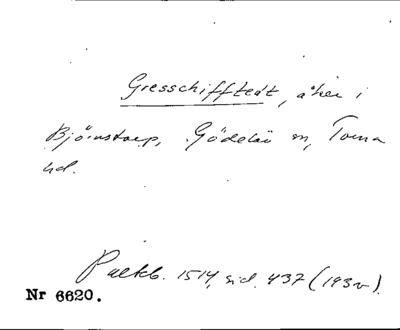 Gresschifftedt, åker i
Björnstorp, Gödelöv sn, Torna
hd.
Palteb. 1514, sid. 437 (193v).
Nr 6620.